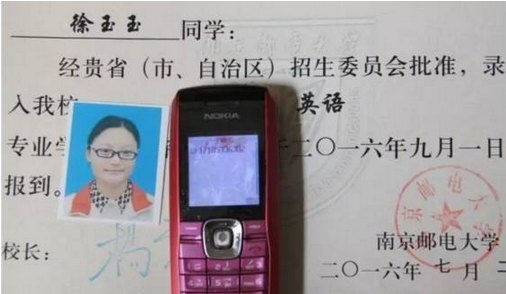 徐玉玉 同学：
经贵省（市、自治区）招生委员会批准，录
入我校 英语
专业学 于二〇一六年九月一日
报到。
NOKIA
校长： 南京邮电大学
二〇一六年 七 月 二
京邮电大学